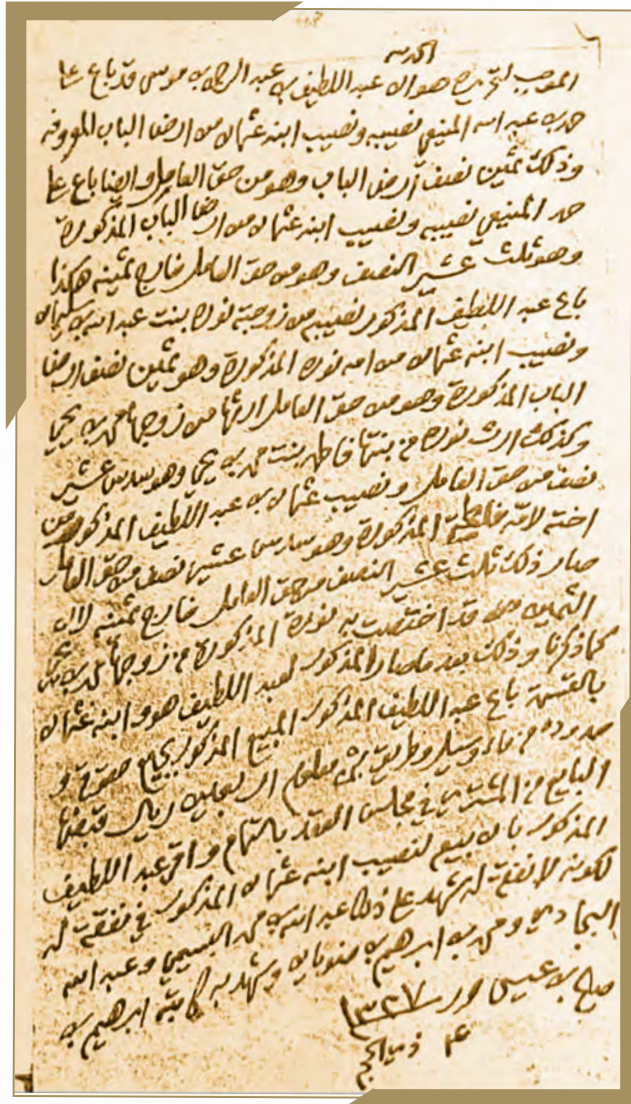 الحمد لله
الموجب لتحريره هو ان عبد اللطيف بن عبد الرحمن بن موسى قد باع على
حمد بن عبد الله المنيعي نصيبه ونصيب ابنه عثمان من ارض الباب المعروفه
وذلك ثمين نصف أرض الباب وهو من حق العامل وايضا باع على
حمد المنيعي نصيبه ونصيب ابنه عثمان من ارض الباب المذكورة
وهو ثلث عشير النصف وهو من حق العامل خارج ثمينه هكذا
باع عبد اللطيف المذكور نصيبه من زوجته نوره بنت عبد الله بن سليمان
ونصيب ابنه عثمان من امه نوره المذكورة وهو ثمين نصف ارض
الباب المذكورة وهو من حق العامل ارثها من زوجها محمد بن يحيى
وكذلك ارث نوره من بنتها فاطمه بنت محمد بن يحيى وهو سدس عشير
نصف من حق العامل ونصيب عثمان بن عبد اللطيف المذكور من
اخته لامه فاطمة المذكورة وهو سدس عشير نصف من حق العامل
صار ذلك ثلث عشير النصف من حق العامل خارج ثمينه لان
الثمين قد اختصت به نورة المذكورة من زوجها محمد بن يحيى
كما ذكرنا وذلك بعد ما صار المذكور لعبد اللطيف هو وابنه عثمان
بالقسمة باع عبد اللطيف المذكور المبيع المذكور بجميع حقوقه و
حدوده من ماء وسيل وطريق بثمن معلوم اربعين ريال قبضها
البايع من المشتري في مجلس العقد بالتمام واقر عبد اللطيف
المذكور بان بيع لنصيب ابنه عثمان المذكور في نفقته له
لكونه لا نفقة له شهد على ذلك عبد الله بن محمد البسيمي وعبد الله
البجادي ومحمد بن ابراهيم بن وشهد به كاتبه ابراهيم بن
صالح بن عيسى حرر ١٣٢٧
٤ ذي الحجه